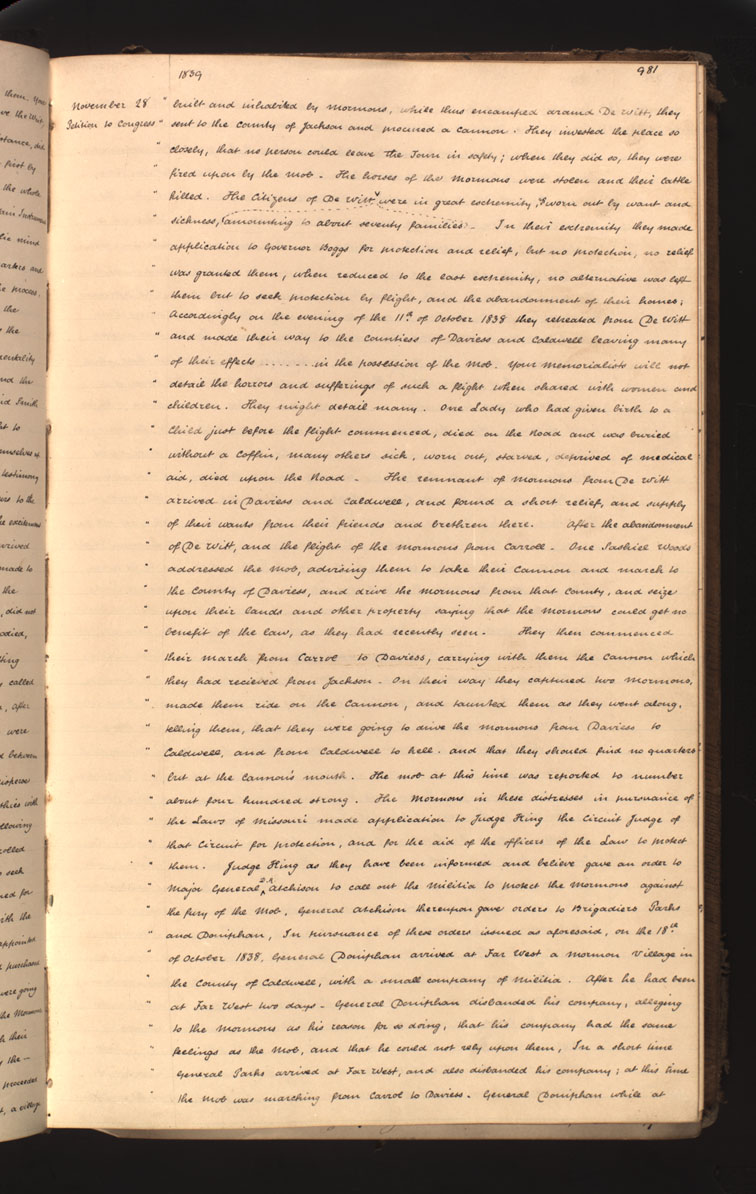 1839
981
November 28 " built and inhabited by Mormons, while thus encamped around De Witt, they
Petition to Congress " sent to the County of Jackson and procured a Cannon. They invested the place so
" closely, that no person could leave the Town in safety; when they did so, they were
" fired upon by the Mob. The horses of the Mormons were stolen and their Cattle
" killed. The Citizens of De Witt were in great extremity, & worn out by want and
" sickness, (amounting to about seventy families) - In their extremity they made
" application to Governor Boggs for protection and relief, but no protection, no relief
" was granted them, when reduced to the last extremity, no alternative was left
" them but to seek protection by flight, and the abandonment of their homes;
" Accordingly on the evening of the 11th of October 1838 they retreated from De Witt
" and made their way to the Countiess of Daviess and Caldwell leaving many
" of their effects ........ in the possession of the Mob. Your Memorialists will not
" detail the horrors and sufferings of such a flight when shared with women and
" children. They might detail many. One Lady who had given birth to a
" Child just before the flight commenced, died on the Road and was buried
" without a Coffin, many others sick, worn out, starved, deprived of medical
" aid, died upon the Road - The remnant of Mormons from De Witt
" arrived in Daviess and Caldwell, and found a short relief, and supply
" of their wants from their friends and brethren there. After the abandonment
" of De Witt, and the flight of the Mormons from Carroll - One Sashiel Woods
" addressed the Mob, advising them to take their Cannon and march to
" the County of Daviess, and drive the Mormons from that County, and seize
" upon their lands and other property saying that the Mormons could get no
" benefit of the law, as they had recently seen - They then commenced
" their march from Carrol to Daviess, carrying with them the Cannon which
" they had recieved from Jackson - On their way they captured two Mormons,
" made them ride on the Cannon, and taunted them as they went along,
" telling them, that they were going to drive the Mormons from Daviess to
" Caldwell, and from Caldwell to hell. and that they should find no quarters
" but at the Cannon's mouth. The Mob at this time was reported to number
" about four hundred strong. The Mormons in these distresses in pursuance of
" the Laws of Missouri made application to Judge King the Circuit Judge of
" that Circuit for protection, and for the aid of the officers of the Law to protect
" them. Judge King as they have been informed and believe gave an order to
" Major General D. R. Atchison to call out the Militia to protect the Mormons against
" the fury of the Mob, General Atchison thereupon gave orders to Brigadiers Parks
" and Doniphan, In pursuance of these orders issued as aforesaid, on the 18th
" of October 1838, General Doniphan arrived at Far West a Mormon Village in
" the County of Caldwell, with a small company of Militia. After he had been
" at Far West two days - General Doniphan disbanded his company, alleging
" to the Mormons as his reason for so doing, that his company had the same
" feelings as the Mob, and that he could not rely upon them, In a short time
" General Parks arrived at Far West, and also disbanded his company; at this time
" the Mob was marching from Carrol to Daviess. General Doniphan while at